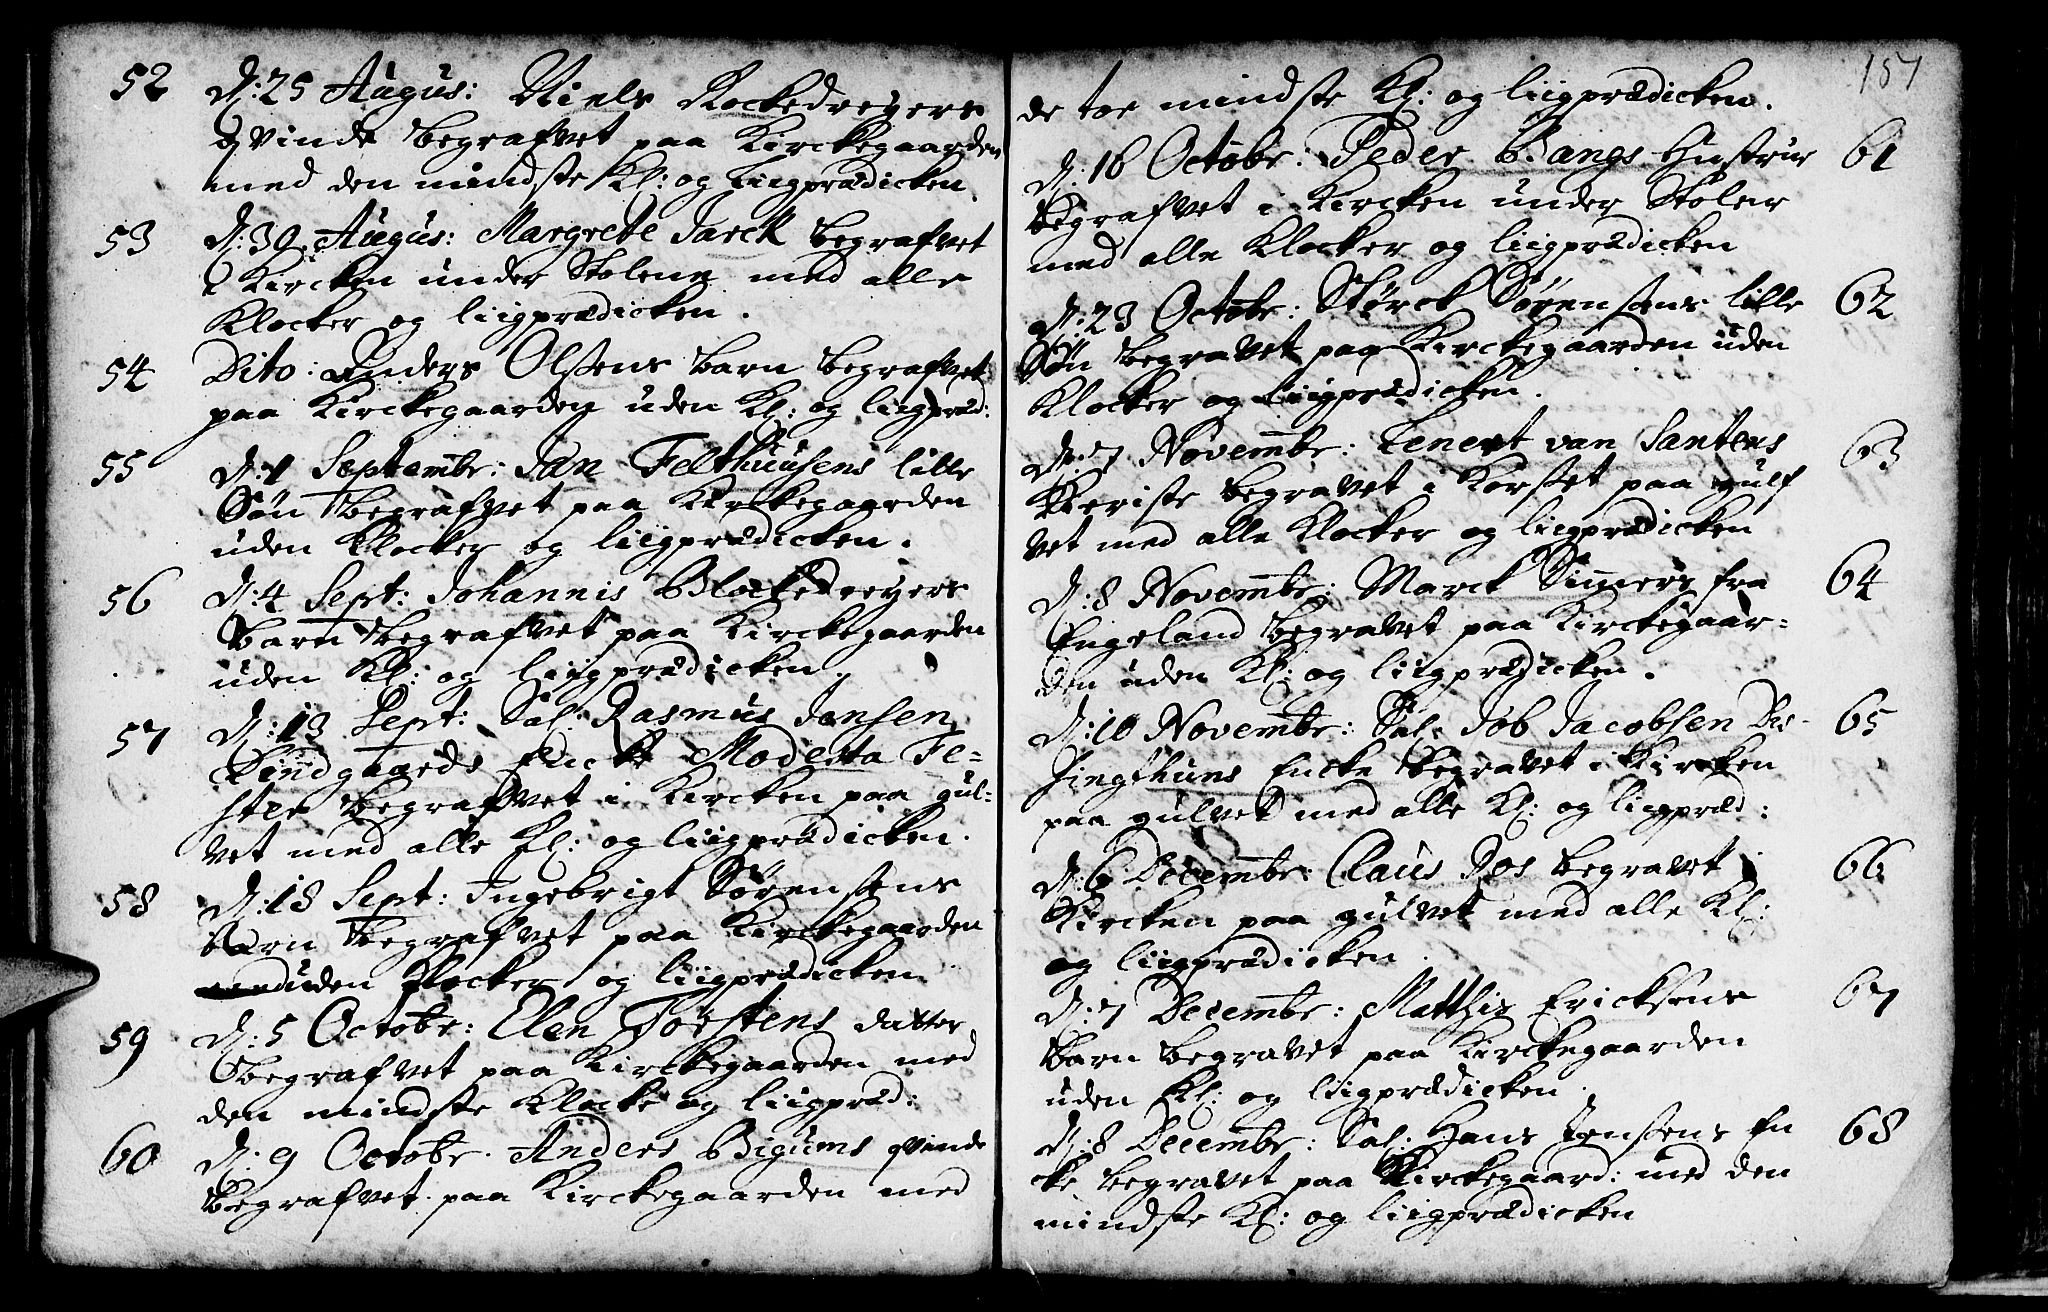 52 D: 25 Augus: Niels Rockedreyers
qvinde begrafvet paa Kirckegaarden
med den mindste Kl: og Liigprædicken
53 D: 30 Augus: Margrete Jarck begrafvet
i Kircken under Stolene med alle
Klocker og liigprædicken.
54 Dito: Anders Olsens barn begrafvet
paa Kirckegaarden uden Kl: og liigpræd:
55 D: 1 Septembr: Jan Felthuusens lille
Søn begrafvet paa Kirckegaarden
uden Klocker og liigprædicken.
56 D: 4 Sept: Johannis Blockedreyers
barn begrafvet paa Kirckegaarden
uden Kl: og liigprædicken.
57 D: 13 Sept: Sal: Rasmus Jensen
Lindgaards Encke Modesta Fe-
ster begrafvet i Kircken paa gul-
vet med alle Kl: og liigprædicken.
58 D: 18 Sept: Ingebrigt Sørensens
barn begrafvet paa Kirckegaarden
uden Klocker og liigprædicken
59 D: 5 Octobr: Elen Torstens datter
begrafvet paa Kirckegaarden med
den mindste Klocke og liigpræd:
60 D: 9 Octobr. Anders Bigums qvinde
begrafvet paa Kirckegaarden med
157
de toe mindste Kl: og liigprædicken.
D: 16 Octobr: Peder Bangs Hustrue 61
begrafvet i Kircken under Stolen
med alle Klocker og liigprædicken
D: 23 Octobr: Størck Sørensens lille 62
Søn begravet paa Kirckegaarden uden
Klocker og liigprædicken.
D: 7 Novembr: Lenert van Santens 63
Kieriste begravet i Korset paa gulf
vet med alle Klocker og liigprædicken
D: 8 Novembr: Marck Simers fra 64
Engeland begravet paa Kirckegaar-
den uden Kl: og liigprædicken.
D: 10 Novembr: Sal. Job Jacobsen Dis- 65
Jingthuns Encke begravet i Kircken
paa gulvet med alle Kl: og liigpræd:
D: 6 Decembr: Claus Dos begravet i 66
Kircken paa gulvet med alle Kl:
og liigprædicken.
D: 7 Decembr: Matthis Ericksens 67
barn begravet paa Kirckegaarden
uden Kl: og liigprædicken.
D: 8 Decembr: Sal: Hans Jensens En 68
cke begravet paa Kirckegaard: med den
mindste Kl: og liigprædicken